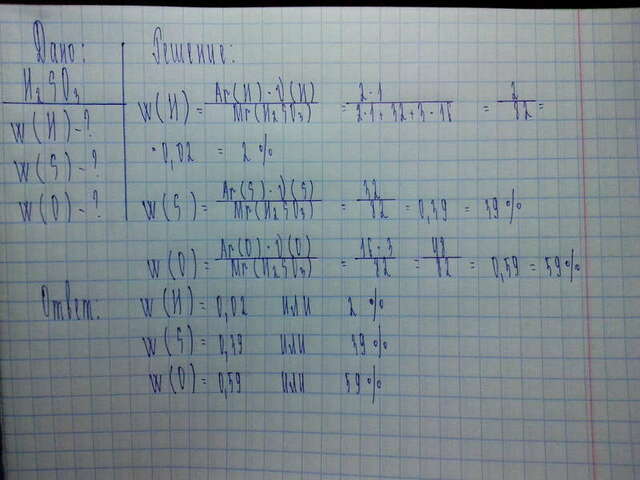 Дано: Решение:
H₂SO₃
w(H) - ? w(H) = Ar(H)·ν(H) / Mr(H₂SO₃) = 2·1 / 2·1 + 32 + 3·16 = 2 / 82 =
= 0,02 = 2 %
w(S) - ?
w(O) - ? w(S) = Ar(S)·ν(S) / Mr(H₂SO₃) = 32 / 82 = 0,39 = 39 %
w(O) = Ar(O)·ν(O) / Mr(H₂SO₃) = 16·3 / 82 = 48 / 82 = 0,59 = 59 %
Ответ: w(H) = 0,02 или 2 %
w(S) = 0,39 или 39 %
w(O) = 0,59 или 59 %